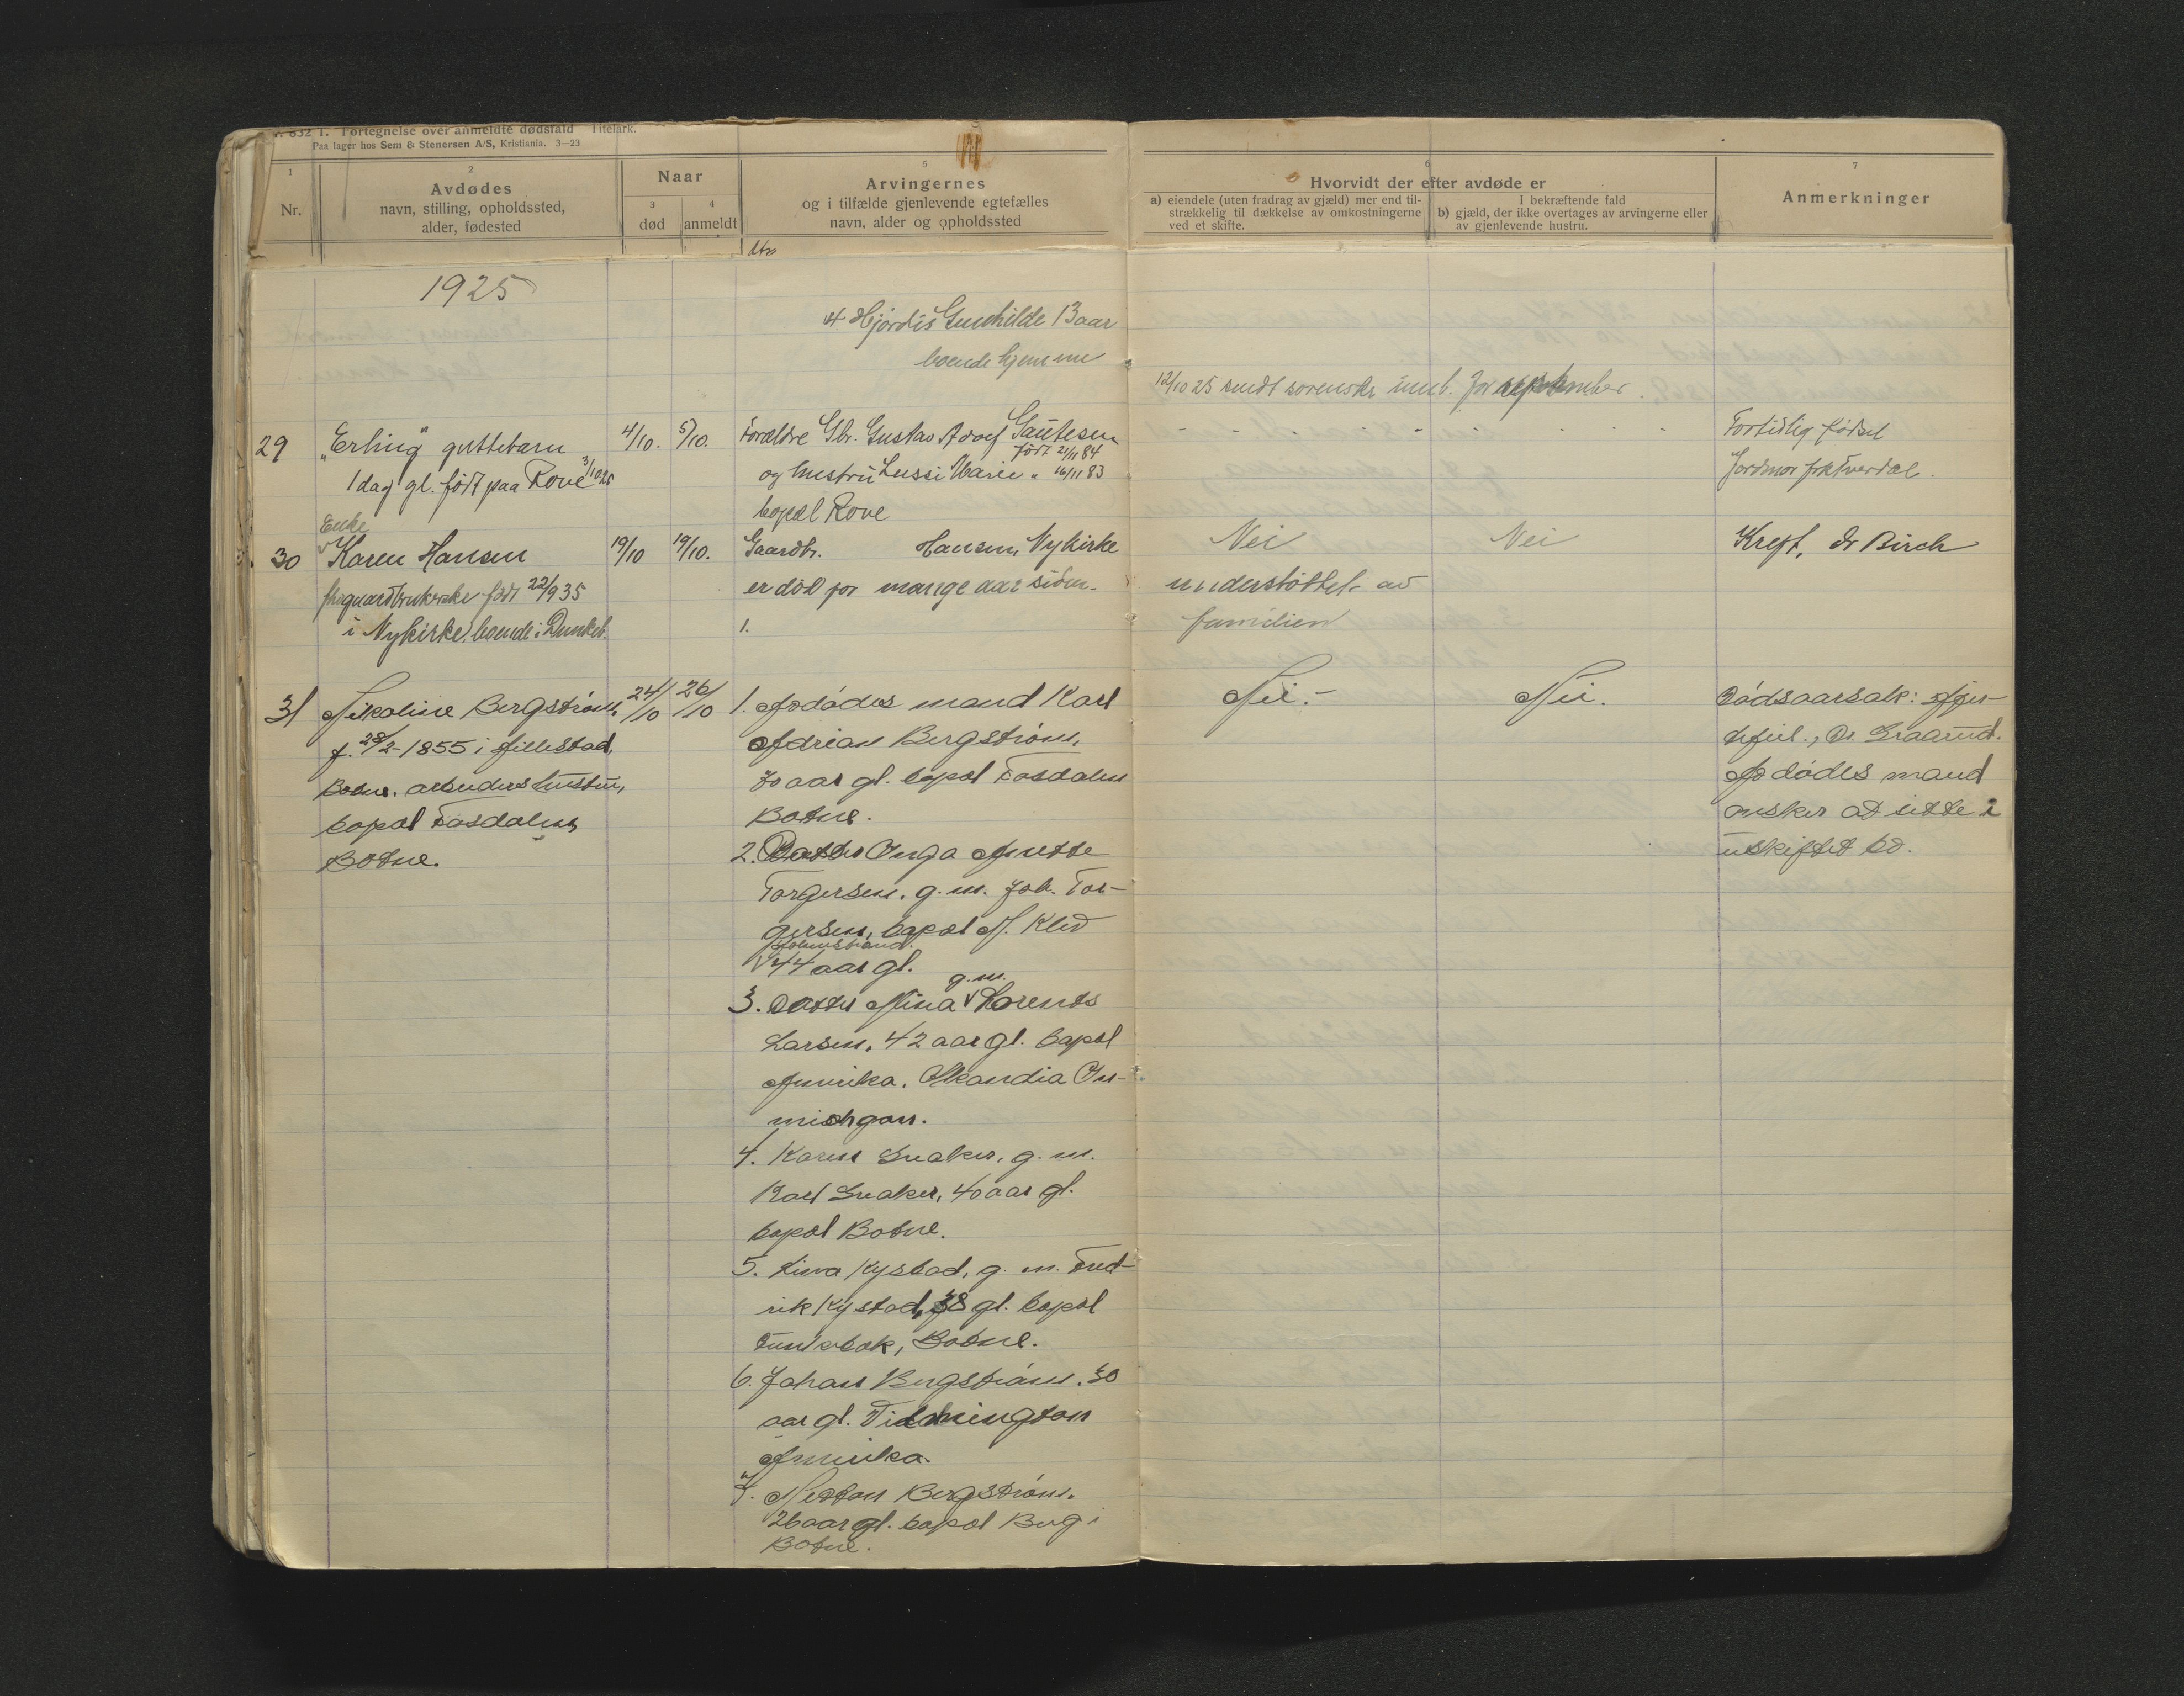 832 1. Fortegnelse over anmeldte dødsfald Titelark.
Paa lager hos Sem & Stenersen A/S, Kristiania. 3—23
1
Nr.
2
Avdødes
navn, stilling, opholdssted,
alder, fødested
Naar
3
død
4
anmeldt
5
Arvingernes
og i tilfælde gjenlevende egtefælles
navn, alder og opholdssted
6
Hvorvidt der efter avdøde er
a) eiendele (uten fradrag av gjæld) mer end til-
strækkelig til dækkelse av omkostningerne
ved et skifte.
I bekræftende fald
b) gjæld, der ikke overtages av arvingerne eller
av gjenlevende hustru.
7
Anmerkninger
1925
4 Hjørdis Gunhilde 13 aar
boende hjemme
12/10 25 sendt sorenskr innb. for september.
29
"Erling" guttebarn
1 dag gl. født paa Rove 3/10 25
4/10.
5/10.
Forældre Gbr. Gustav Adolf Gautesen
født 21/11 84
og hustru Lussi Marie " 16/11 83
bopæl Rove
- - - - - - - -
Fortidlig fødsel
Jordmor frk Tverdal.
30
Enke
Karen Hansen
fhv gaardbrukerske født 22/9 35
i Nykirke, boende i Dunkeb.
19/10
19/10.
Gaardbr. Hansen, Nykirke
er død for mange aar siden.
1.
Nei
understøttet av
familien
Nei
Kreft, dr Birch
31
Nikoline Bergstrøm,
f. 28/2-1855 i Hillestad,
Botne. arbeiders hustru,
bopæl Fosdalen,
Botne.
24/10
26/10
1. Avdødes mand Karl
Adrian Bergstrøm,
70 aar gl. bopæl Fosdalen
Botne.
2. Datter Inga Anette
Torgersen, g. m. Joh. Tor-
gersen, bopæl N. Klev
Holmestrand.
44 aar gl.
3. Datter Mina g. m. Lorents
Larsen, 42 aar gl. bopæl
Amerika. Skandia On-
mischgan.
4. Karen Snaker, g. m.
Karl Snaker, 40 aar gl.
bopæl Botne.
5. Lina Kystad, g. m. Fred-
rik Kystad, 38 gl. bopæl
Dunkebæk, Botne.
6. Johan Bergstrøm, 30
aar gl. Vilmington
Amerika.
7. Nettan Bergstrøm,
26 aar gl. bopæl Berg i
Botne.
Nei.-
Nei.
Dødsaarsak: Hjer-
tefeil., Dr. Graarud.
Avdødes mand
ønsker at sitte i
uskiftet bo.